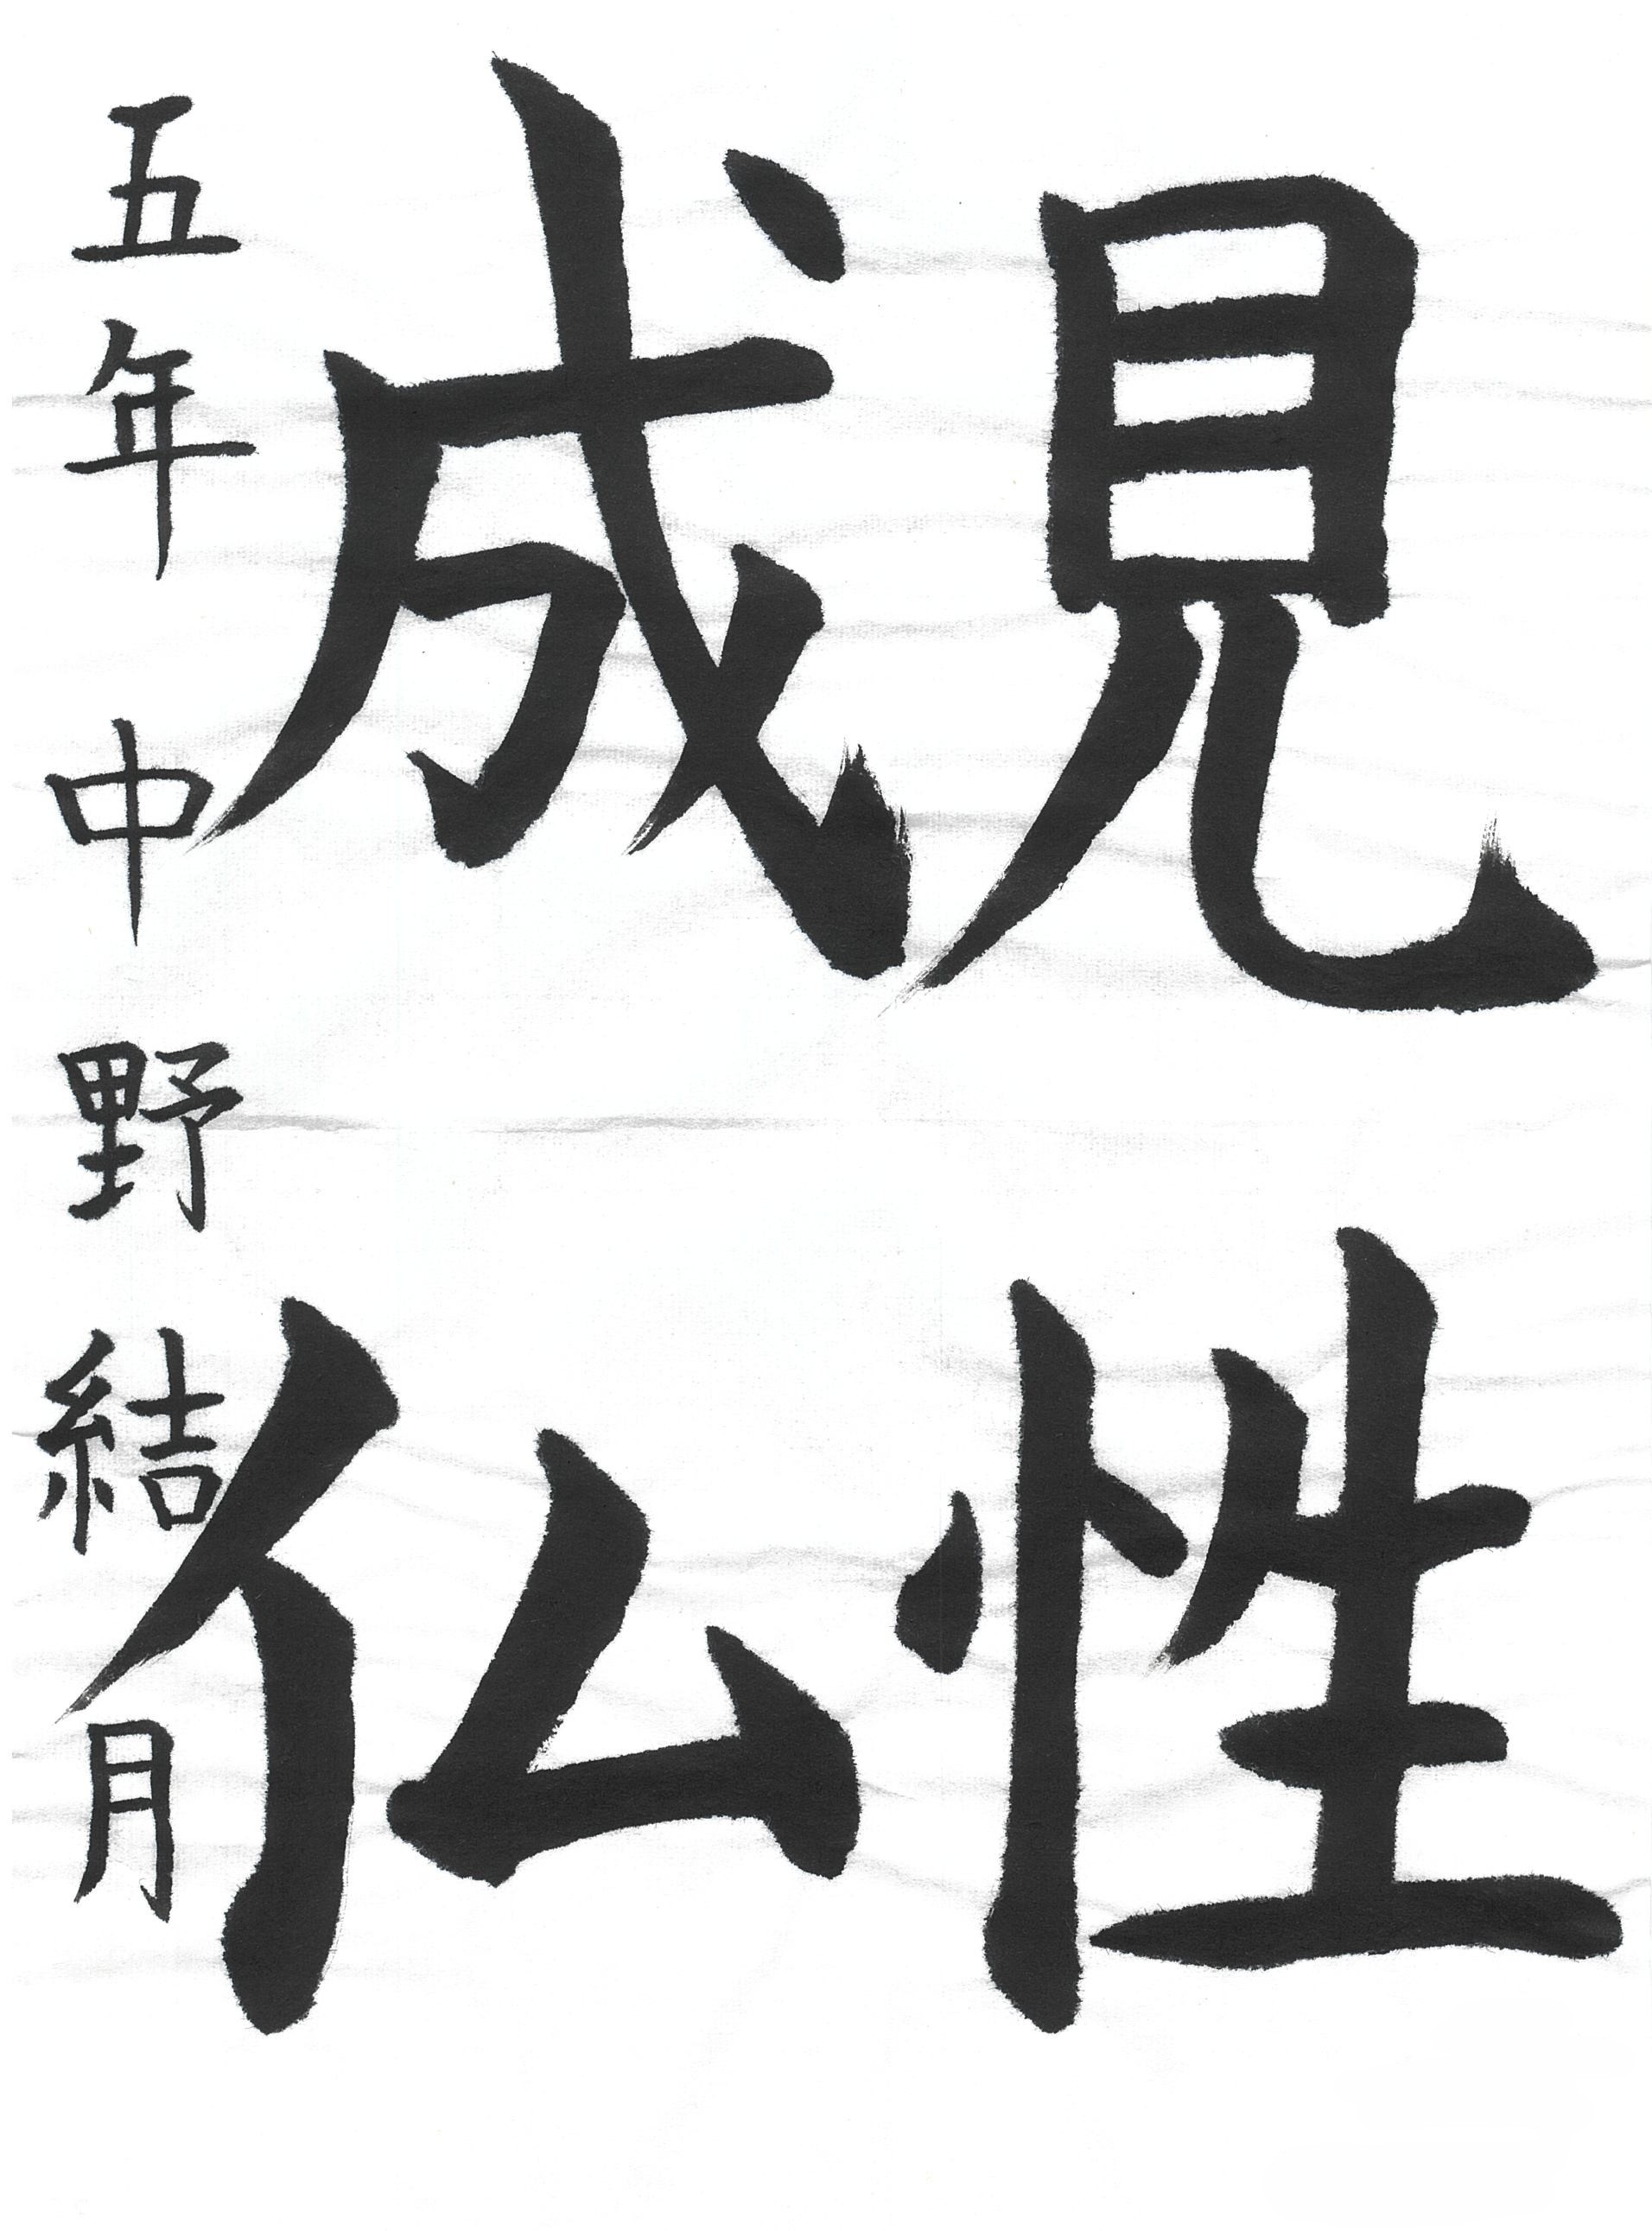 見性
成仏
五年 中野結月